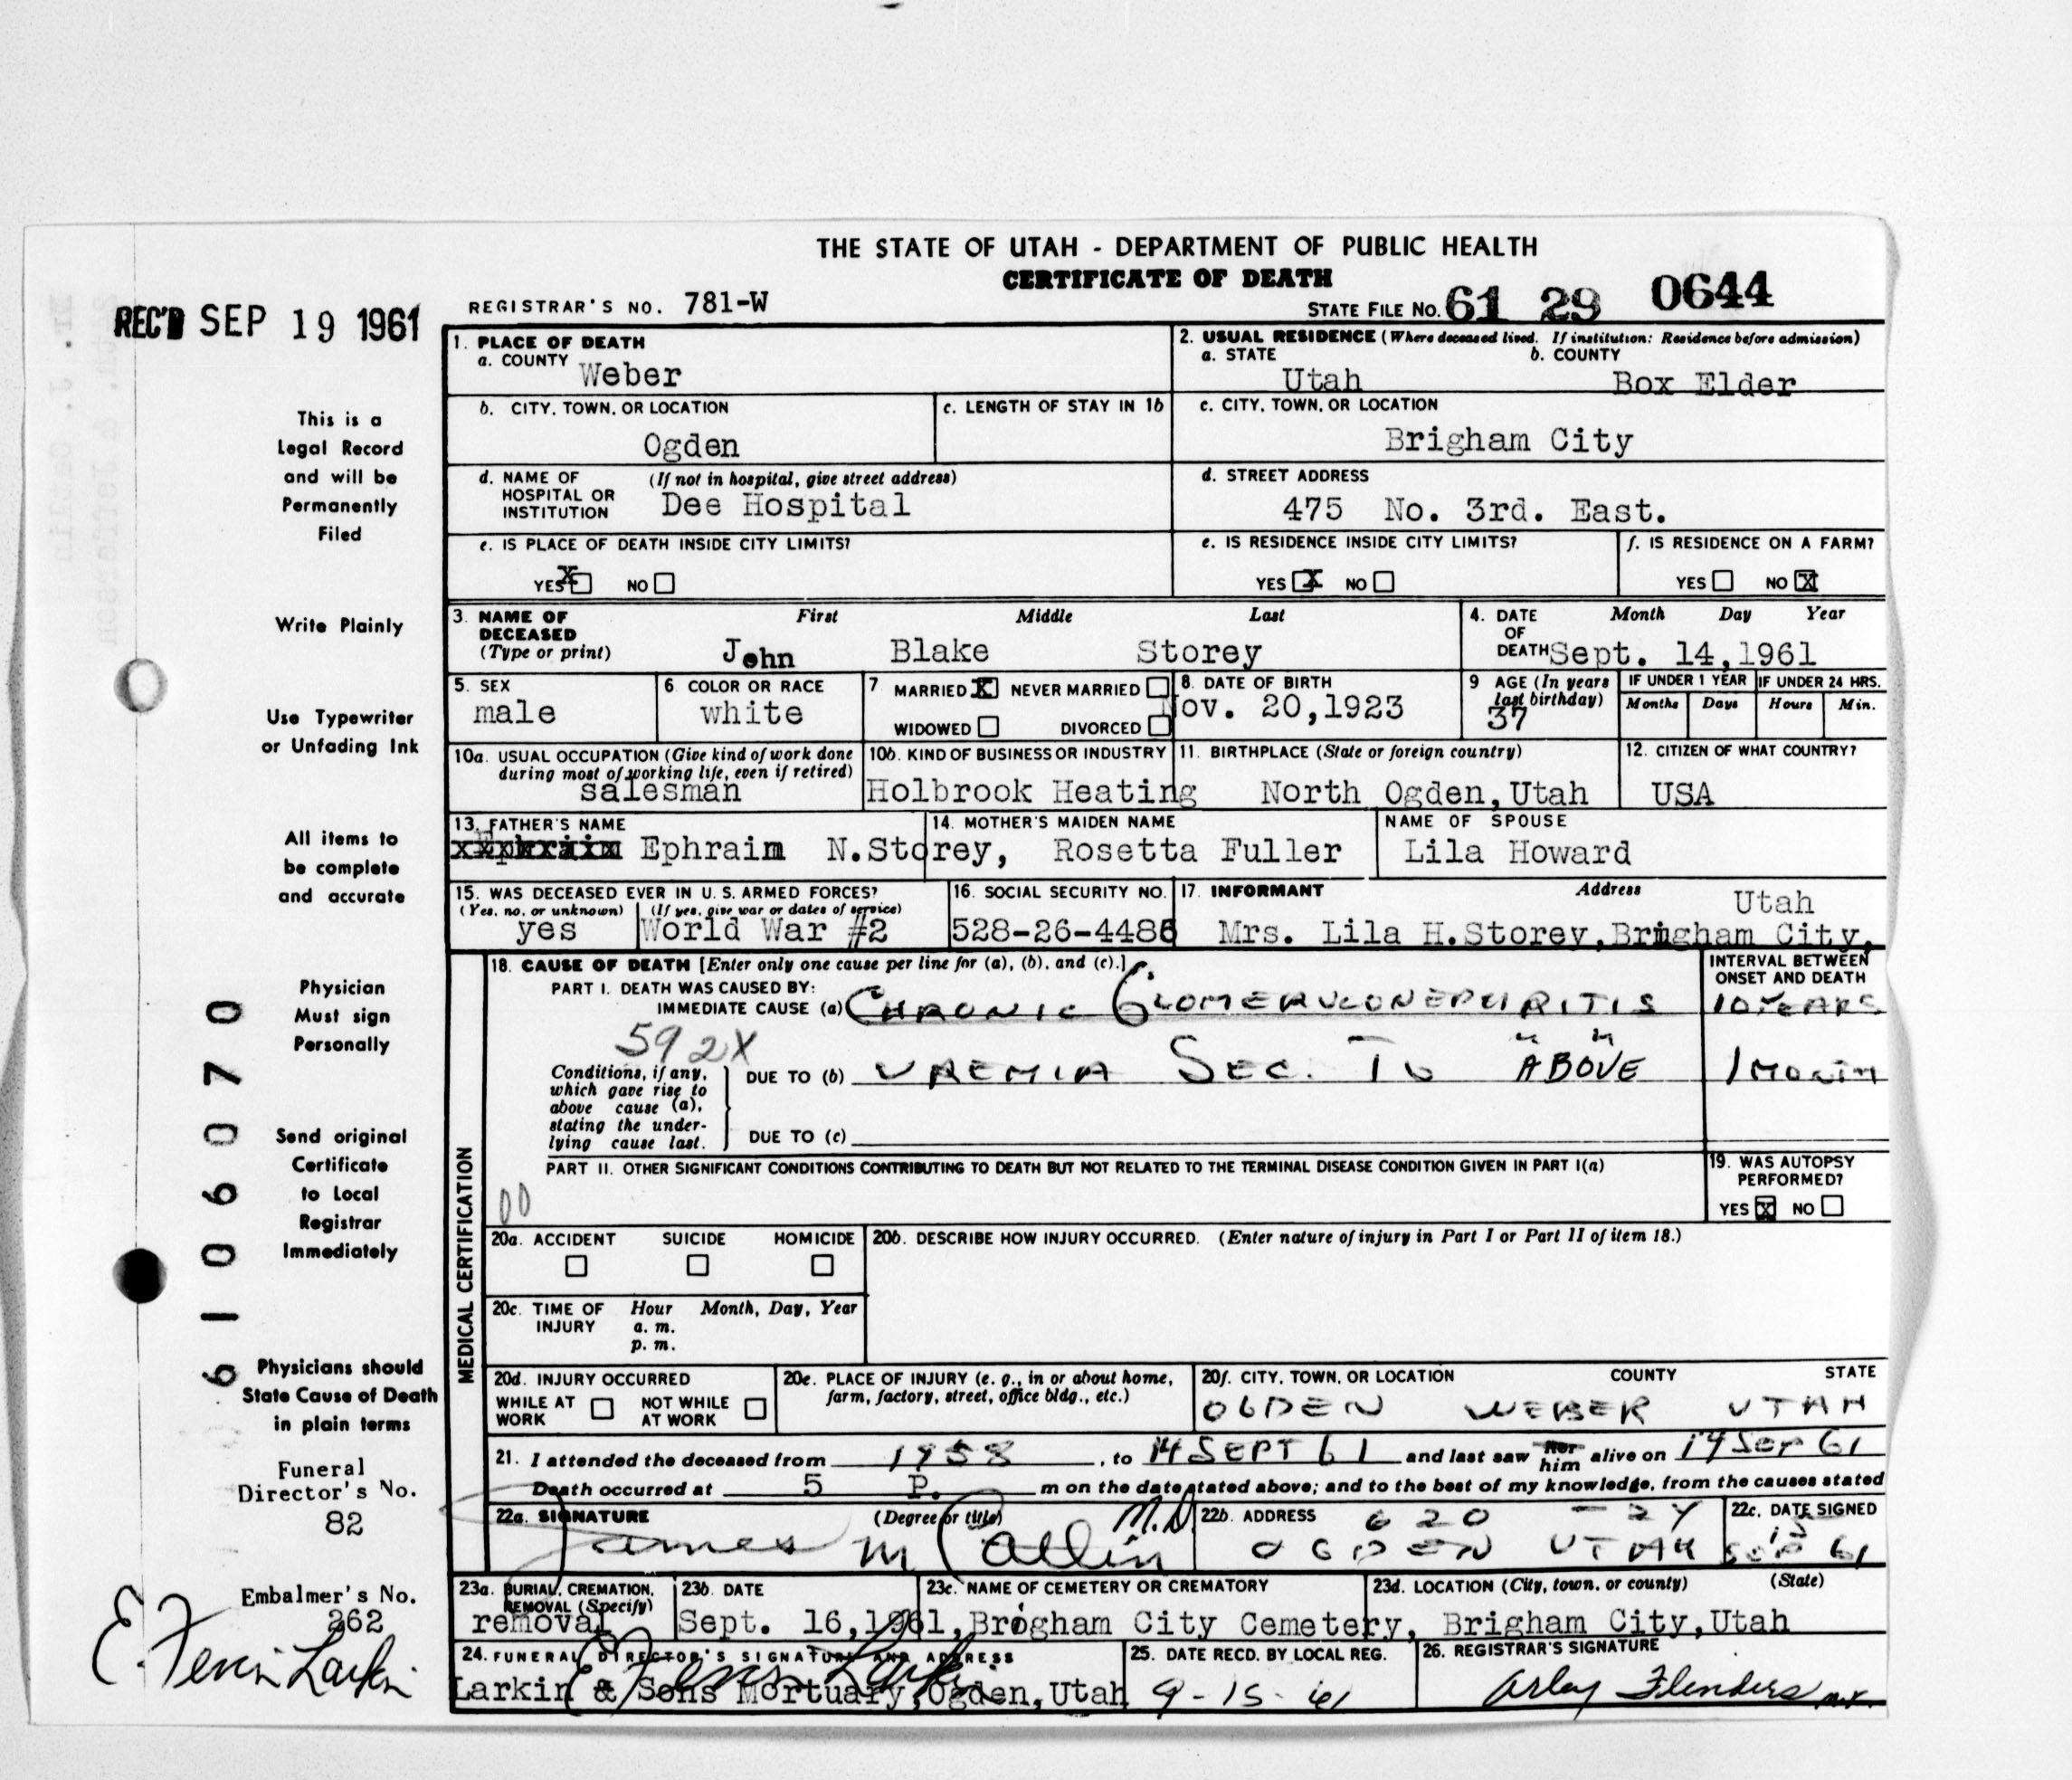 THE STATE OF UTAH - DEPARTMENT OF PUBLIC HEALTH
CERTIFICATE OF DEATH
REC'D SEP 19 1961
REGISTRAR'S NO. 781-W
STATE FILE NO. 61 29 0644
This is a
Legal Record
and will be
Permanently
Filed
Write Plainly
Use Typewriter
or Unfading Ink
All items to
be complete
and accurate
Physician
Must sign
Personally
Send original
Certificate
to Local
Registrar
Immediately
Physicians should
State Cause of Death
in plain terms
Funeral
Director's No.
82
Embalmer's No.
262
E. Feren Larkin
6106070
1. PLACE OF DEATH
a. COUNTY Weber
2. USUAL RESIDENCE (Where deceased lived. If institution: Residence before admission)
a. STATE Utah b. COUNTY Box Elder
b. CITY, TOWN, OR LOCATION Ogden
c. LENGTH OF STAY IN 1b
c. CITY, TOWN, OR LOCATION Brigham City
d. NAME OF HOSPITAL OR INSTITUTION (If not in hospital, give street address) Dee Hospital
d. STREET ADDRESS 475 No. 3rd. East.
e. IS PLACE OF DEATH INSIDE CITY LIMITS?
YES X NO
e. IS RESIDENCE INSIDE CITY LIMITS?
YES X NO
f. IS RESIDENCE ON A FARM?
YES NO X
3. NAME OF DECEASED (Type or print) First Middle Last
John Blake Storey
4. DATE OF DEATH Month Day Year
Sept. 14,1961
5. SEX male
6. COLOR OR RACE white
7 MARRIED X NEVER MARRIED
WIDOWED DIVORCED
8. DATE OF BIRTH Nov. 20,1923
9 AGE (In years last birthday) 37
IF UNDER 1 YEAR IF UNDER 24 HRS.
Months Days Hours Min.
10a. USUAL OCCUPATION (Give kind of work done during most of working life, even if retired) salesman
10b. KIND OF BUSINESS OR INDUSTRY Holbrook Heating
11. BIRTHPLACE (State or foreign country) North Ogden, Utah
12. CITIZEN OF WHAT COUNTRY? USA
13. FATHER'S NAME Ephraim N.Storey,
14. MOTHER'S MAIDEN NAME Rosetta Fuller
NAME OF SPOUSE Lila Howard
15. WAS DECEASED EVER IN U. S. ARMED FORCES?
(Yes, no, or unknown) yes (If yes, give war or dates of service) World War #2
16. SOCIAL SECURITY NO. 528-26-4486
17. INFORMANT Address
Mrs. Lila H.Storey, Brigham City, Utah
MEDICAL CERTIFICATION
18. CAUSE OF DEATH [Enter only one cause per line for (a), (b), and (c).]
INTERVAL BETWEEN ONSET AND DEATH
PART I. DEATH WAS CAUSED BY:
IMMEDIATE CAUSE (a) CHRONIC GLOMERULONEPHRITIS 10 YEARS
592X
Conditions, if any, which gave rise to above cause (a), stating the underlying cause last.
DUE TO (b) UREMIA SEC. TO ABOVE 1 MONTH
DUE TO (c)
PART II. OTHER SIGNIFICANT CONDITIONS CONTRIBUTING TO DEATH BUT NOT RELATED TO THE TERMINAL DISEASE CONDITION GIVEN IN PART I(a)
00
19. WAS AUTOPSY PERFORMED?
YES X NO
20a. ACCIDENT SUICIDE HOMICIDE
20b. DESCRIBE HOW INJURY OCCURRED. (Enter nature of injury in Part I or Part II of item 18.)
20c. TIME OF INJURY Hour Month, Day, Year
a. m.
p. m.
20d. INJURY OCCURRED
WHILE AT WORK NOT WHILE AT WORK
20e. PLACE OF INJURY (e. g., in or about home, farm, factory, street, office bldg., etc.)
20f. CITY, TOWN, OR LOCATION COUNTY STATE
OGDEN WEBER UTAH
21. I attended the deceased from 1958, to 14 SEPT 61 and last saw her him alive on 14 Sep 61
Death occurred at 5 P. m on the date stated above; and to the best of my knowledge, from the causes stated
22a. SIGNATURE (Degree or title)
James M Catlin M.D.
22b. ADDRESS 620 - 24
OGDEN UTAH
22c. DATE SIGNED
15 SEP 61
23a. BURIAL, CREMATION, REMOVAL (Specify) removal
23b. DATE Sept. 16,1961,
23c. NAME OF CEMETERY OR CREMATORY Brigham City Cemetery,
23d. LOCATION (City, town, or county) (State) Brigham City,Utah
24. FUNERAL DIRECTOR'S SIGNATURE AND ADDRESS
E Feren Larkin
Larkin & Sons Mortuary,Ogden,Utah
25. DATE RECD. BY LOCAL REG. 9-15-61
26. REGISTRAR'S SIGNATURE
Arley Flinders